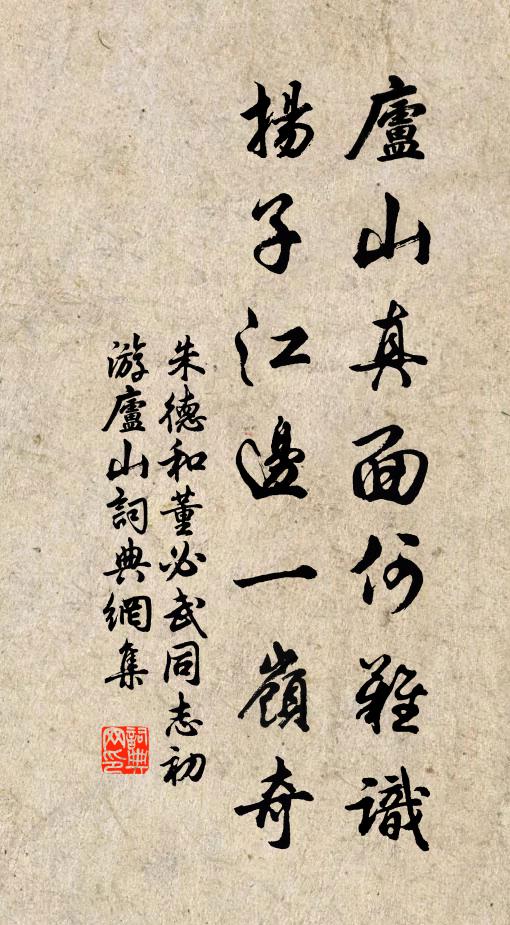 廬山真面何難識
揚子江邊一嶺奇
朱德和董必武同志初
游廬山詞典網集
詞典
网印